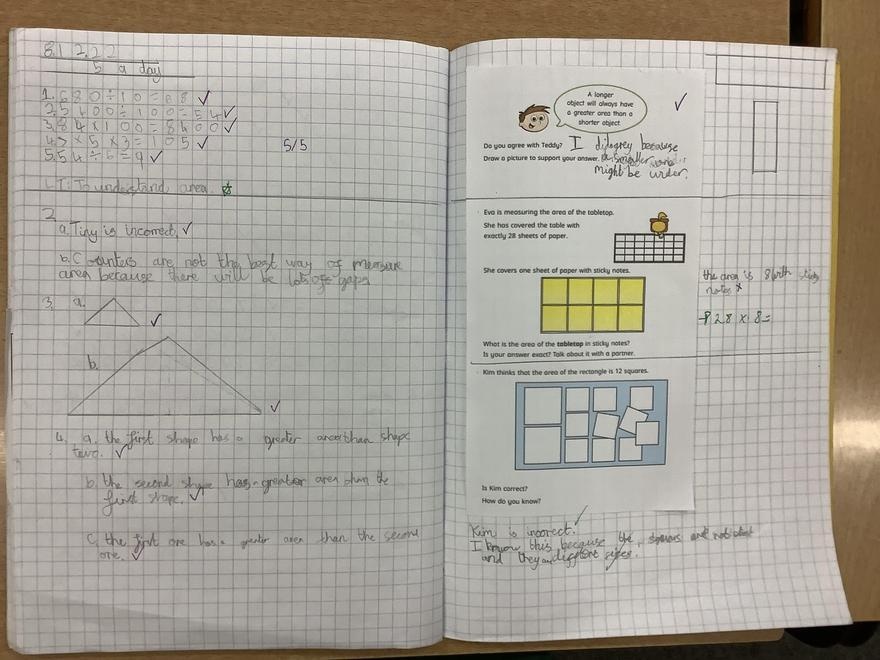 8.12.22
5 a day
1. 680÷10=68 ✓
2. 5400÷100=54 ✓
3. 84×100=8400 ✓
4. 7×5×3=105 ✓
5. 54÷6=9 ✓
5/5
LI: To understand area.
2.
a. Tiny is incorrect. ✓
b. Counters are not the best way of measure
area because there will be lots of gaps
3. a. ✓
b. ✓
4. a. the first shape has a greater area than shape
two. ✓
b. the second shape has a greater area than the
first shape. ✓
c. the first one has a greater area than the second
one. ✓
A longer
object will always have
a greater area than a
shorter object.
✓
Do you agree with Teddy? I because
Draw a picture to support your answer. a smaller
might be wider.
Eva is measuring the area of the tabletop.
She has covered the table with
exactly 28 sheets of paper.
She covers one sheet of paper with sticky notes.
the area is 8 with sticky
notes ×
28 × 8 =
What is the area of the tabletop in sticky notes?
Is your answer exact? Talk about it with a partner.
Kim thinks that the area of the rectangle is 12 squares.
Is Kim correct?
How do you know?
Kim is incorect. ✓
I know this because the squares are not
and they different sizes.